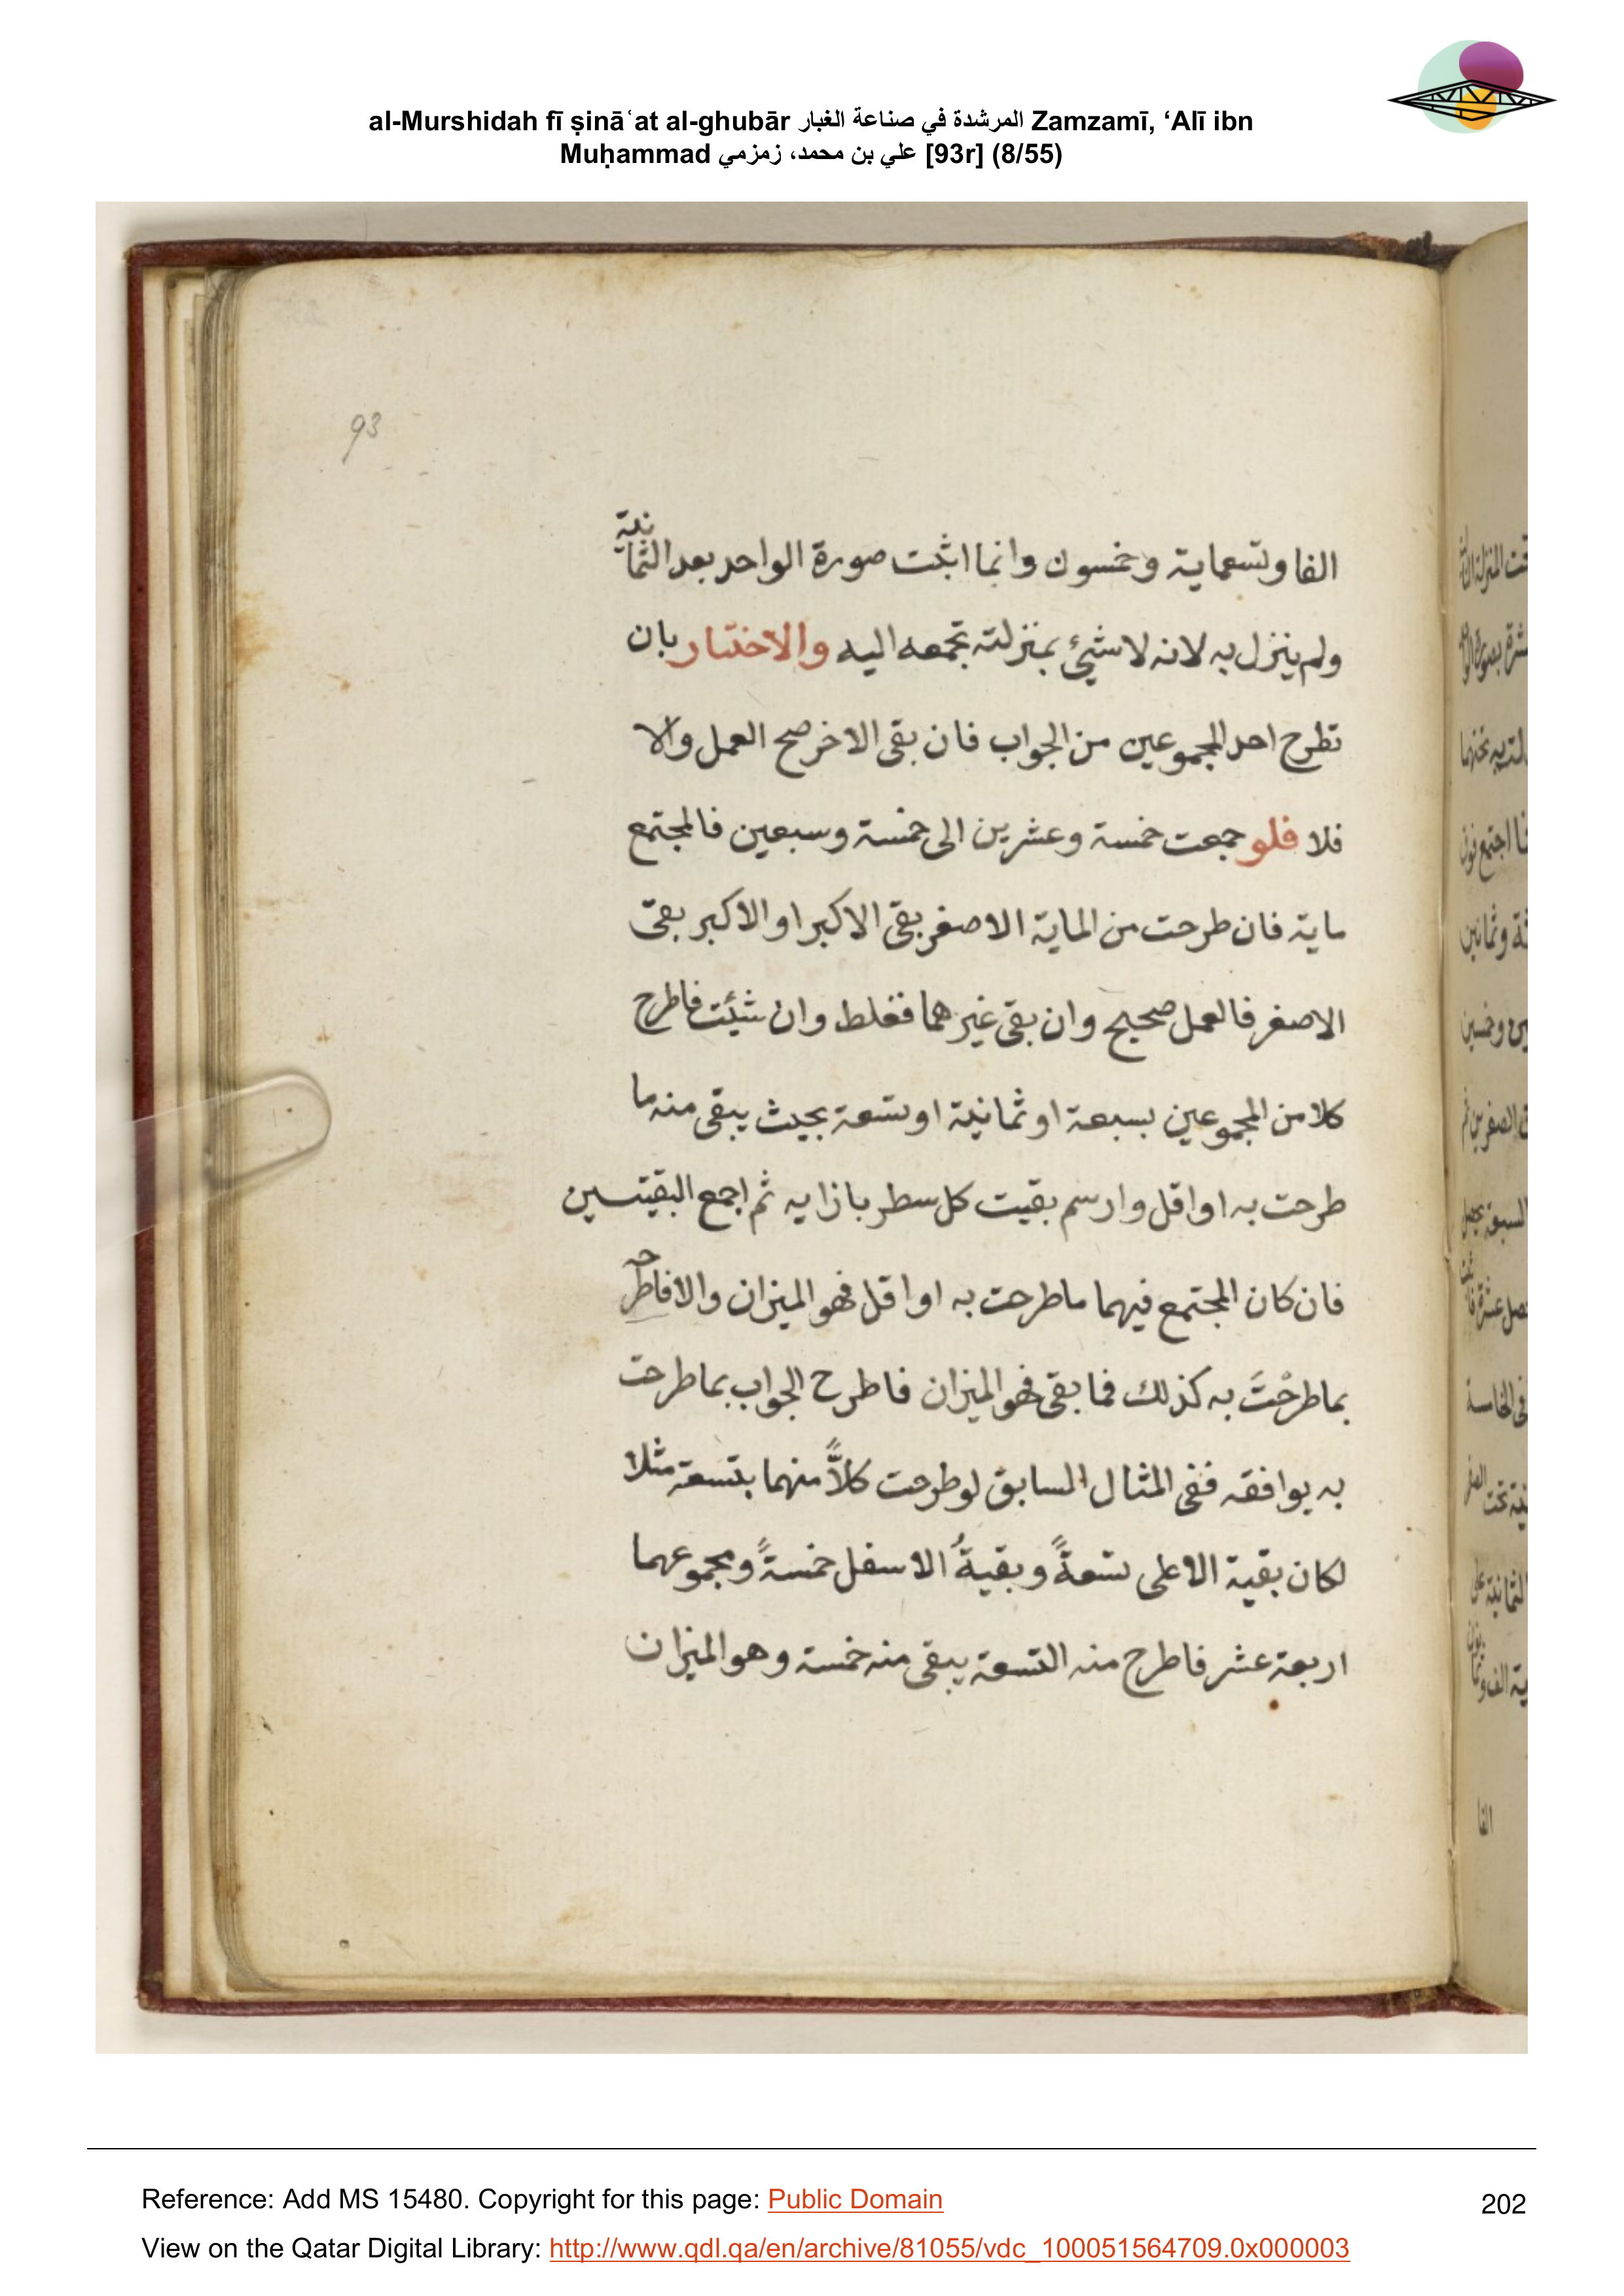 al-Murshidah fī ṣināʿat al-ghubār المرشدة في صناعة الغبار Zamzamī, ‘Alī ibn
Muḥammad علي بن محمد، زمزمي [93r] (8/55)
93
الفا وتسعماية وخمسون وانما اثبت صورة الواحد بعد الثمانية
ولم ينزل به لانه لا شيئ بمنزلته تجمعه اليه والاختبار بان
تطرح احد المجموعين من الجواب فان بقى الاخر صح العمل والا
فلا فلو جمعت خمسة وعشرين الى خمسة وسبعين فالمجتمع
ماية فان طرحت من الماية الاصغر بقى الاكبر او الاكبر بقى
الاصغر فالعمل صحيح وان بقى غيرهما فغلط وان شئت فاطرح
كلا من المجموعين بسبعة او ثمانية او تسعة بحيث يبقى منه ما
طرحت به او اقل وارسم بقيت كل سطر بازايه ثم اجمع البقيتين
فان كان المجتمع فيهما ما طرحت به او اقل فهو الميزان والا فاطرحه
بما طرحْتَ به كذلك فما بقى فهو الميزان فاطرح الجواب بما طرحت
به يوافقه ففى المثال السابق لو طرحت كلاًّ منهما بتسعة مثلا
لكان بقية الاعلى تسعةً وبقيةُ الاسفل خمسةً ومجموعهما
اربعة عشر فاطرح منه التسعة يبقى منه خمسة وهو الميزان
الفا
Reference: Add MS 15480. Copyright for this page: Public Domain
202
View on the Qatar Digital Library: http://www.qdl.qa/en/archive/81055/vdc_100051564709.0x000003